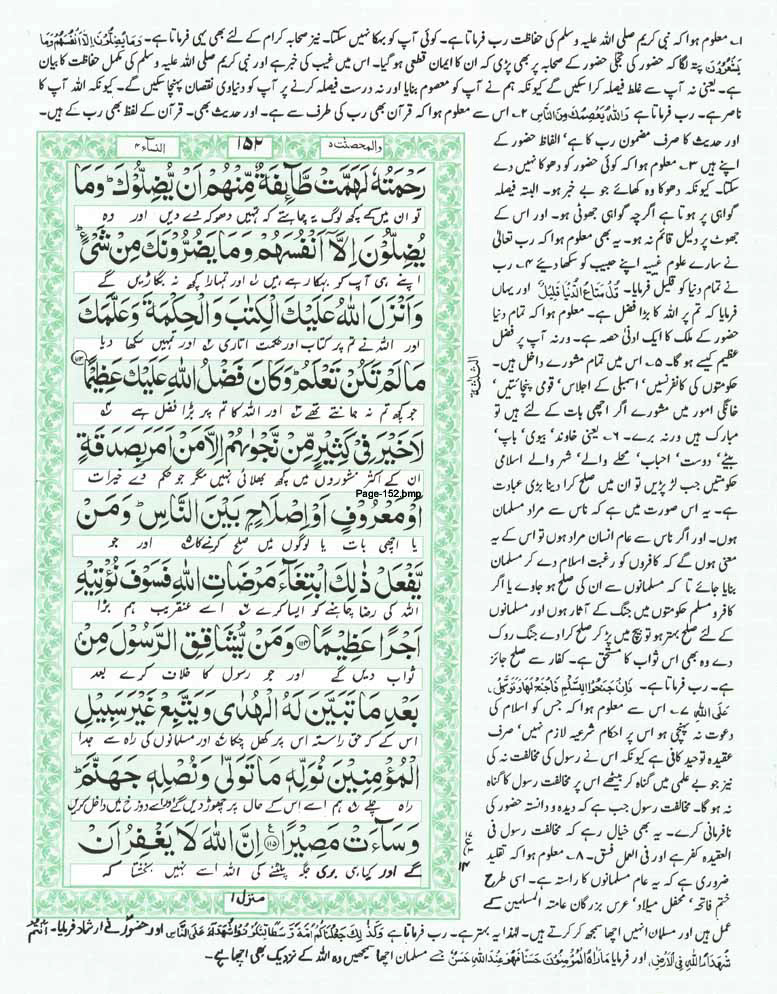 ۱۔ معلوم ہوا کہ نبی کریم صلی اللہ علیہ وسلم کی حفاظت رب فرماتا ہے۔ کوئی آپ کو بہکا نہیں سکتا۔ نیز صحابہ کرام کے لئے بھی یہی فرماتا ہے۔ وَمَا يُضِلُّونَ اِلَّا اَنْفُسَهُمْ وَمَا
يَشْعُرُوْنَ پتہ لگا کہ حضور کی تجلی حضور کے صحابہ پر بھی پڑی کہ ان کا ایمان قطعی ہو گیا۔ اس میں غیب کی خبر ہے اور نبی کریم صلی اللہ علیہ وسلم کی مکمل حفاظت کا بیان
ہے۔ یعنی نہ آپ سے غلط فیصلہ کرا سکیں گے کیونکہ ہم نے آپ کو معصوم بنایا اور نہ درست فیصلہ کرنے پر آپ کو دنیاوی نقصان پہنچا سکیں گے۔ کیونکہ اللہ آپ کا
ناصر ہے۔ رب فرماتا ہے وَاللّٰهُ يَعْصِمُكَ مِنَ النَّاسِ ۲۔ اس سے معلوم ہوا کہ قرآن بھی رب کی طرف سے ہے۔ اور حدیث بھی۔ قرآن کے لفظ بھی رب کے ہیں۔
اور حدیث کا صرف مضمون رب کا ہے‘ الفاظ حضور کے
اپنے ہیں ۳۔ معلوم ہوا کہ کوئی حضور کو دھوکا نہیں دے
سکتا۔ کیونکہ دھوکا وہ کھائے جو بے خبر ہو۔ البتہ فیصلہ
گواہی پر ہوتا ہے اگرچہ گواہی جھوٹی ہو۔ اور اس کے
جھوٹ پر دلیل قائم نہ ہو۔ یہ بھی معلوم ہوا کہ رب تعالٰی
نے سارے علوم غیبیہ اپنے حبیب کو سکھا دیئے ۴۔ رب
نے تمام دنیا کو قلیل فرمایا۔ قُلْ مَتَاعُ الدُّنْيَا قَلِيْلٌ اور یہاں
فرمایا کہ تم پر اللہ کا بڑا فضل ہے۔ معلوم ہوا کہ تمام دنیا
حضور کے ملک کا ایک ادنٰی حصہ ہے۔ ورنہ آپ پر فضل
عظیم کیسے ہو گا۔ ۵۔ اس میں تمام مشورے داخل ہیں۔
حکومتوں کی کانفرنسیں‘ اسمبلی کے اجلاس‘ قومی پنچائتیں‘
خانگی امور میں مشورے اگر اچھی بات کے لئے ہیں تو
مبارک ہیں ورنہ برے۔ ۶۔ یعنی خاوند‘ بیوی‘ باپ‘
بیٹے‘ دوست‘ احباب‘ محلے والے‘ شہر والے اسلامی
حکومتیں جب لڑ پڑیں تو ان میں صلح کرا دینا بڑی عبادت
ہے۔ یہ اس صورت میں ہے کہ ناس سے مراد مسلمان
ہوں۔ اور اگر ناس سے عام انسان مراد ہوں تو اس کے یہ
معنی ہوں گے کہ کافروں کو رغبت اسلام دے کر مسلمان
بنایا جائے تا کہ مسلمانوں سے ان کی صلح ہو جاوے یا اگر
کافر و مسلم حکومتوں میں جنگ کے آثار ہوں اور مسلمانوں
کے لئے صلح بہتر ہو تو بیچ میں پڑ کر صلح کرا دے جنگ روک
دے وہ بھی اس ثواب کا مستحق ہے۔ کفار سے صلح جائز
ہے۔ رب فرماتا ہے۔ فَاِنْ جَنَحُوْا لِلسَّلْمِ فَاجْنَحْ لَهَا وَتَوَكَّلْ
عَلَى اللّٰهِ ۷۔ اس سے معلوم ہوا کہ جس کو اسلام کی
دعوت نہ پہنچی ہو اس پر احکام شرعیہ لازم نہیں‘ صرف
عقیدہ توحید کافی ہے کیونکہ اس نے رسول کی مخالفت نہ کی
نیز جو بے علمی میں گناہ کر بیٹھے اس پر مخالفت رسول کا گناہ
نہ ہو گا۔ مخالفت رسول جب ہے کہ دیدہ و دانستہ حضور کی
نافرمانی کرے۔ یہ بھی خیال رہے کہ مخالفت رسول فی
العقیدہ کفر ہے اور فی العمل فسق۔ ۸۔ معلوم ہوا کہ تقلید
ضروری ہے کہ یہ عام مسلمانوں کا راستہ ہے۔ اسی طرح
ختم فاتحہ‘ محفل میلاد‘ عرس بزرگان عامتہ المسلمین کے
والمحصنت ۵
۱۵۲
النساء ۴
رَحْمَتُهٗ لَهَمَّتْ طَّآئِفَةٌ مِّنْهُمْ اَنْ يُّضِلُّوْكَ ؕ وَمَا
تو ان میں کے کچھ لوگ یہ چاہتے کہ تمہیں دھوکہ دے دیں اور وہ
يُضِلُّوْنَ اِلَّاۤ اَنْفُسَهُمْ وَمَا يَضُرُّوْنَكَ مِنْ شَيْءٍ ؕ
اپنے ہی آپ کو بہکا رہے ہیں ۱؎ اور تمہارا کچھ نہ بگاڑیں گے
وَاَنْزَلَ اللّٰهُ عَلَيْكَ الْكِتٰبَ وَالْحِكْمَةَ وَعَلَّمَكَ
اور اللہ نے تم پر کتاب اور حکمت اتاری ۲؎ اور تمہیں سکھا دیا
مَا لَمْ تَكُنْ تَعْلَمُ ؕ وَكَانَ فَضْلُ اللّٰهِ عَلَيْكَ عَظِيْمًا ۝۱۱۳
جو کچھ تم نہ جانتے تھے ۳؎ اور اللہ کا تم پر بڑا فضل ہے ۴؎
لَا خَيْرَ فِيْ كَثِيْرٍ مِّنْ نَّجْوٰىهُمْ اِلَّا مَنْ اَمَرَ بِصَدَقَةٍ
ان کے اکثر مشوروں میں کچھ بھلائی نہیں مگر جو حکم دے خیرات
Page-152.bmp
اَوْ مَعْرُوْفٍ اَوْ اِصْلَاحٍ بَيْنَ النَّاسِ ؕ وَمَنْ
یا اچھی بات یا لوگوں میں صلح کرنے کا ۵؎ اور جو
يَّفْعَلْ ذٰلِكَ ابْتِغَآءَ مَرْضَاتِ اللّٰهِ فَسَوْفَ نُؤْتِيْهِ
اللہ کی رضا چاہنے کو ایسا کرے ۶؎ اسے عنقریب ہم بڑا
اَجْرًا عَظِيْمًا ۝۱۱۴ وَمَنْ يُّشَاقِقِ الرَّسُوْلَ مِنْۢ
ثواب دیں گے اور جو رسول کا خلاف کرے بعد
بَعْدِ مَا تَبَيَّنَ لَهُ الْهُدٰى وَيَتَّبِعْ غَيْرَ سَبِيْلِ
اس کے کہ حق راستہ اس پر کھل چکا ۷؎ اور مسلمانوں کی راہ سے جدا
الْمُؤْمِنِيْنَ نُوَلِّهٖ مَا تَوَلّٰى وَنُصْلِهٖ جَهَنَّمَ ؕ
راہ چلے ۸؎ ہم اسے اس کے حال پر چھوڑ دیں گے اور اسے دوزخ میں داخل کریں
وَسَآءَتْ مَصِيْرًا ۝۱۱۵ اِنَّ اللّٰهَ لَا يَغْفِرُ اَنْ
گے اور کیا ہی بری جگہ پلٹنے کی اللہ اسے نہیں بخشتا کہ
منزل ۱
ع
۱۴
عمل ہیں اور مسلمان انہیں اچھا سمجھ کر کرتے ہیں۔ لہٰذا یہ بہتر ہے۔ رب فرماتا ہے وَكَذٰلِكَ جَعَلْنٰكُمْ اُمَّةً وَّسَطًا لِّتَكُوْنُوْا شُهَدَآءَ عَلَى النَّاسِ اور حضور نے ارشاد فرمایا۔ اَنْتُمْ
شُهَدَاءُ اللّٰهِ فِي الْاَرْضِ‘ اور فرمایا مَا رَاٰهُ الْمُؤْمِنُوْنَ حَسَنًا فَهُوَ عِنْدَ اللّٰهِ حَسَنٌ جسے مسلمان اچھا سمجھیں وہ اللہ کے نزدیک بھی اچھا ہے۔